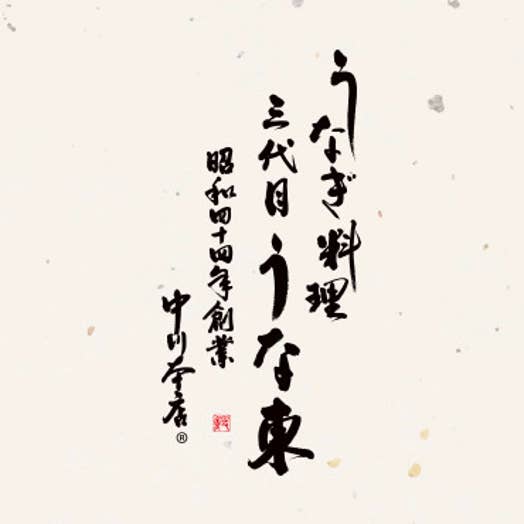 うなぎ料理
三代目うな東
昭和四十四年創業
中川本店®